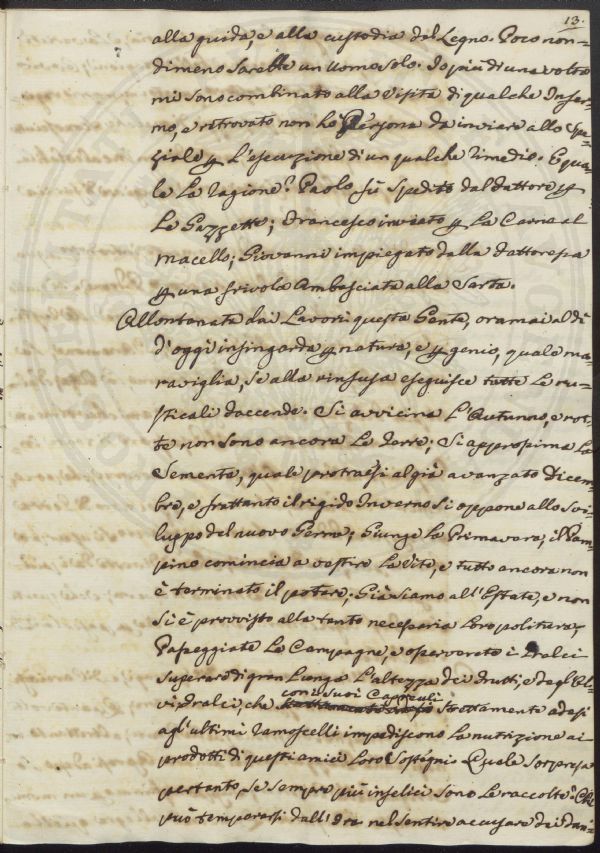 13.
alla guida, e alla custodia del Legno. Poco non=
dimeno sarebbe un Uomo solo. Io più di una volta
mi sono combinato alla visita di qualche Infer=
mo, e ritrovato non hò Persona da inviare allo Spe=
ziale p L'esecuzione di un qualche rimedio. E qua=
le La ragione? Paolo fù spedito dal dattore p
Le Gazzette; Francesco inviato p La Carne al
macello; Giovanni impiegato dalla Fattoressa
p una frivola Ambasciata alla Sarta.
Allontanata dai Lavori questa Gente, oramai al dì
d'oggi infingarda p natura, e p genio, quale ma=
raviglia, se alla rinfusa eseguisce tutte Le ru=
sticali faccende. Si avvicina L'Autunno, e rot=
te non sono ancora Le Terre; Si approssima La
Sementa, quale protraesi al già avanzato Dicem=
bre, e frattanto il rigido Inverno si oppone allo svi=
luppo del nuovo Germe; Giunge La Primavera, il Pam=
pino comincia a vestire La Vite, e tutto ancora non
è terminato il potare; Già siamo all'Estate, e non
si è provvisto alla tanto necessaria Loro politura;
Passeggiate Le Campagne, e osservarete i Tralci
superare di gran Lunga L'altezza dei Frutti, e degl'Ol=
vi, Tralci, che con i suoi Capreuli strettamente adesi
agl'ultimi ramoscelli impediscono La nutrizione ai
prodotti di questi amici Loro Sostegni. Quale sorpresa
pertanto, se sempre più infelici sono Le raccolte? Chi
può temperarsi dall'Ira nel sentire accusare dei dan=